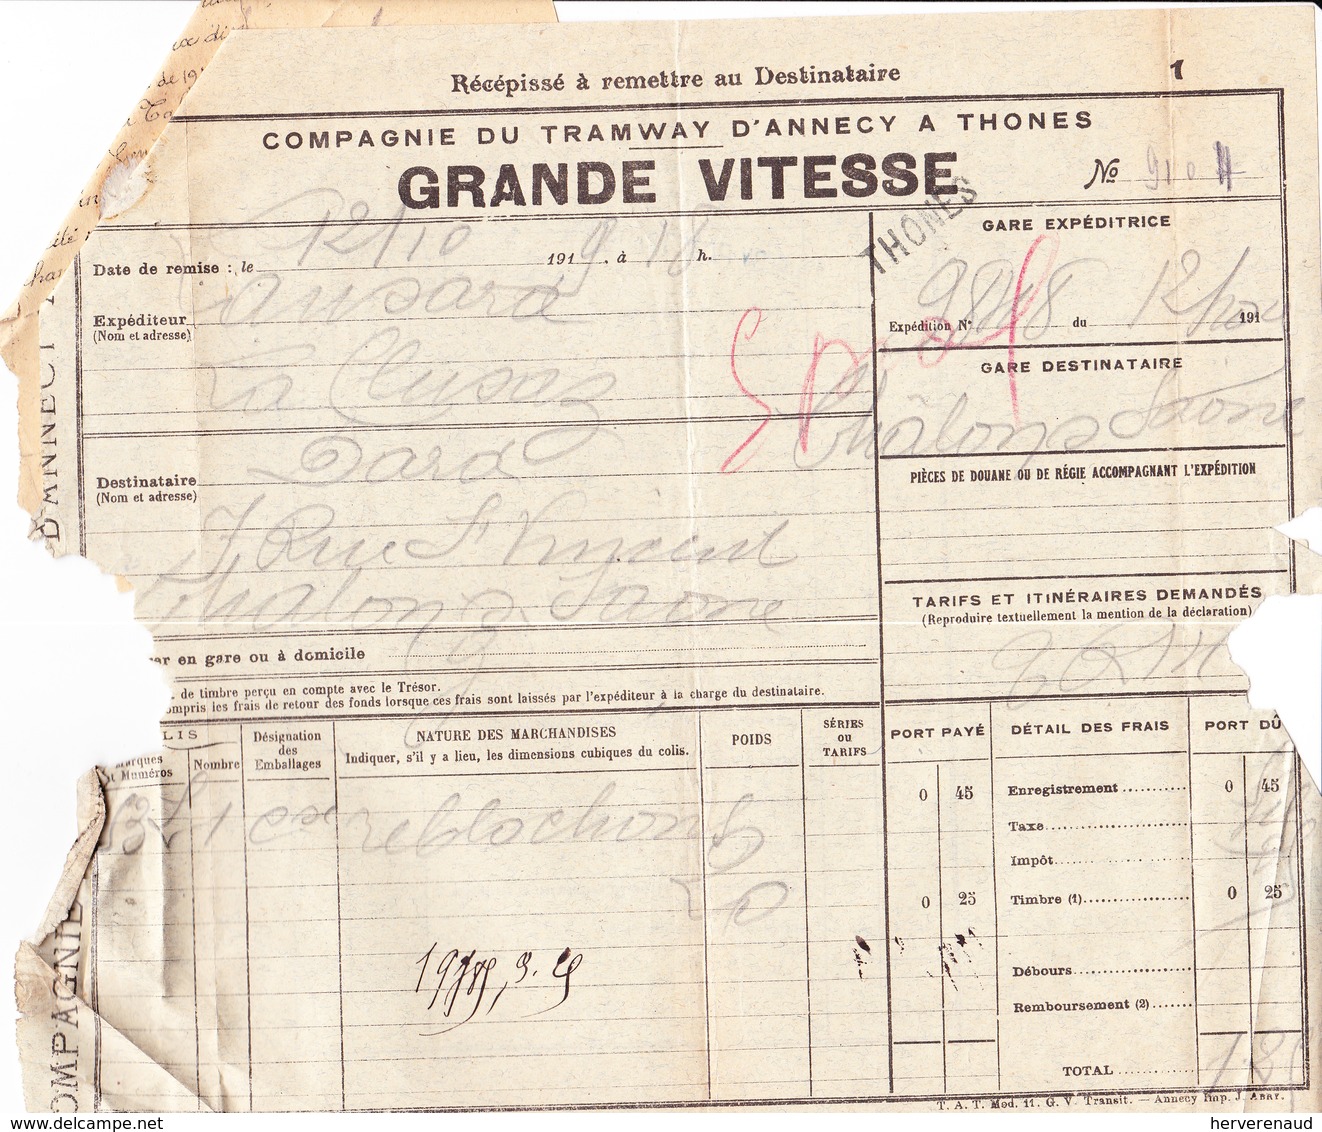 Récépissé à remettre au Destinataire
1
COMPAGNIE DU TRAMWAY D'ANNECY A THONES
GRANDE VITESSE
No 910
THONES
Date de remise : le 12/10 191 9 à 16 h.
GARE EXPÉDITRICE
Expéditeur
(Nom et adresse)
Expédition No 9848 du 12 191
La Clusaz
GARE DESTINATAIRE
Châlons Saone
Destinataire Dard
(Nom et adresse)
PIÈCES DE DOUANE OU DE RÉGIE ACCOMPAGNANT L'EXPÉDITION
7 Rue St Vincent
Chalon s/ Saone
TARIFS ET ITINÉRAIRES DEMANDÉS
(Reproduire textuellement la mention de la déclaration)
er en gare ou à domicile
. de timbre perçu en compte avec le Trésor.
ompris les frais de retour des fonds lorsque ces frais sont laissés par l'expéditeur à la charge du destinataire.
LIS
Marques
et Numéros
Nombre
Désignation
des
Emballages
NATURE DES MARCHANDISES
Indiquer, s'il y a lieu, les dimensions cubiques du colis.
POIDS
SÉRIES
OU
TARIFS
PORT PAYÉ
DÉTAIL DES FRAIS
PORT DÛ
0 45 Enregistrement 0 45
1 reblochons 9
Taxe
Impôt
20
0 25 Timbre (1) 0 25
Débours
Remboursement (2)
TOTAL
T. A. T. Mod. 11. G. V. Transit. — Annecy Imp. J. ABRY.
D'ANNECY
COMPAGNIE
herverenaud